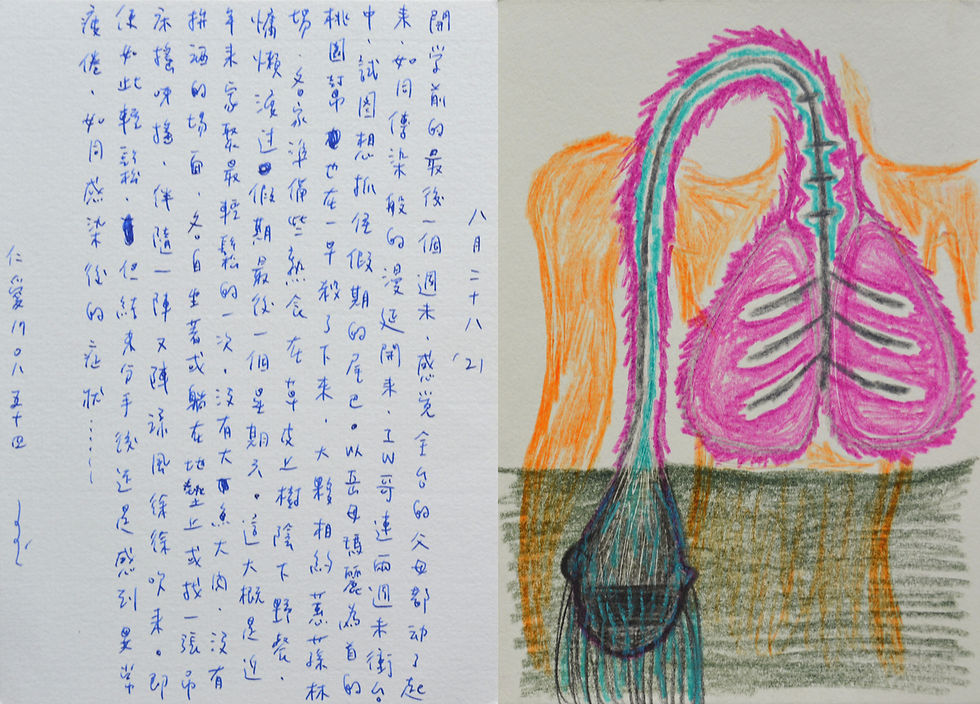 八月二十八 '21
開学前的最後一個週末，感覚全台的父母都动了起
来，如同傳染般的漫延開来，工W哥連兩週末衝台
中，試图想抓住假期的尾巴。以岳母瑪麗為首的
桃園幫也在一早殺了下来，大夥相約蕙蓀林
場，各家準備些熟食在草皮上樹陰下野餐，
慵懒渡过假期最後一個星期六。這大概是近
年来家聚最輕鬆的一次，没有大魚大肉，没有
拚酒的場面，各自坐著或躺在地墊上或找一張吊
床搖呀搖，伴隨一陣又陣涼風徐徐吹来。即
使如此輕鬆，但結束分手後还是感到異常
疲倦，如同感染後的症狀……
仁愛 五十四